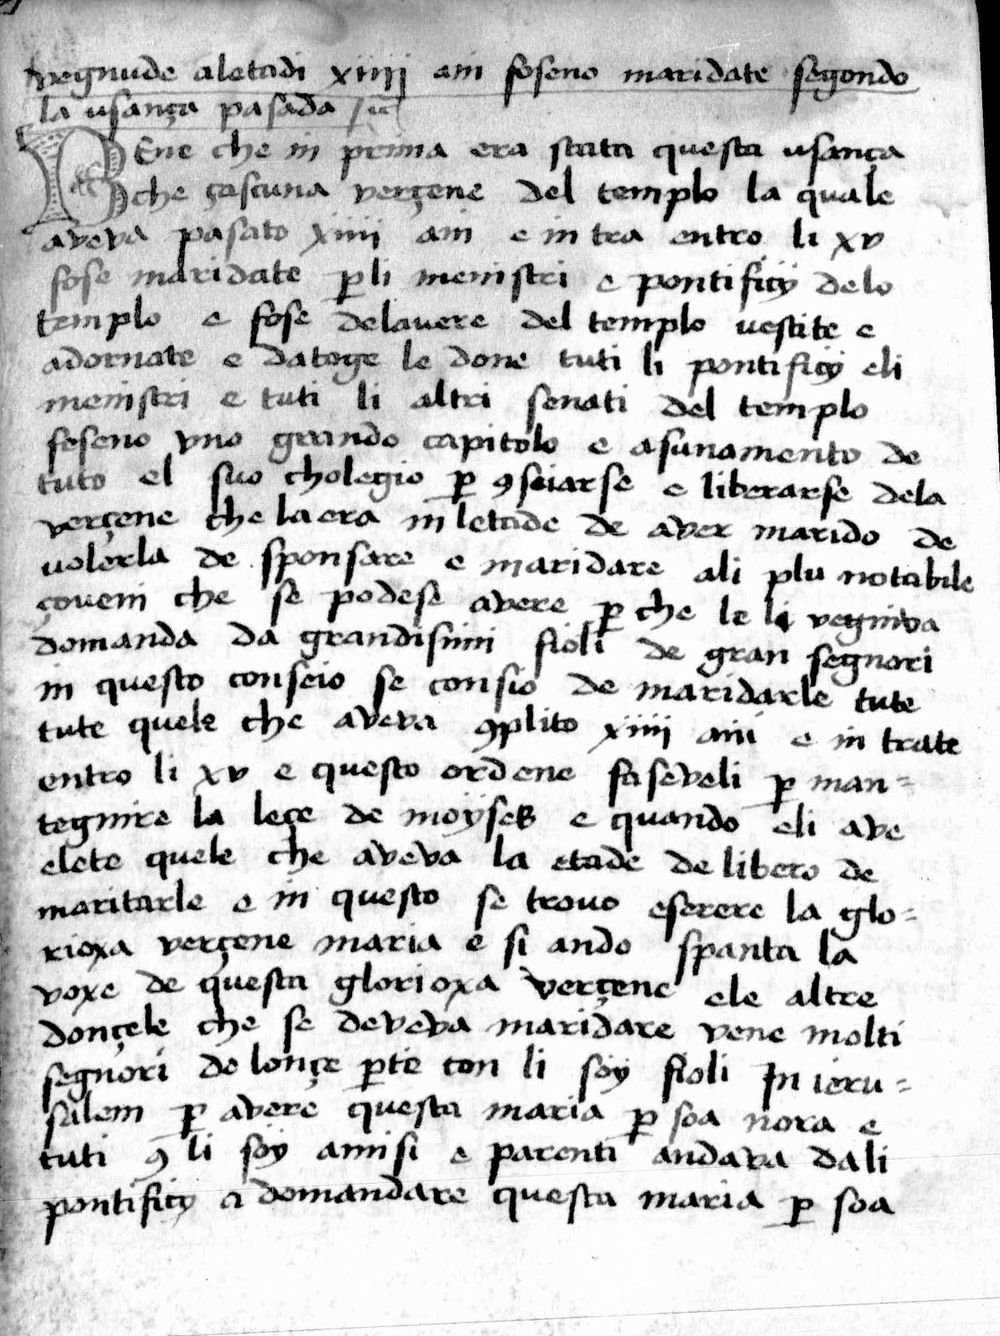 vegnude aletadi xiiij ani foseno maridate segondo
la usança pasada
BEne che in prima era stata questa usança
che çascuna verçene del templo la quale
aveva pasato xiiij ani e intra entro li xv
fose maridate p̲ li menistri e pontificij delo
templo e fose delavere del templo vestite e
adornate e datoge le done tuti li pontificij eli
menistri e tuti li altri senati del templo
feseno vno grando capitolo e asunamento de
tuto el suo cholegio p̲ ꝯseiarse e liberarse dela
verçene che laera in letade de aver marido de
volerla de sponsare e maridare ali plu notabile
çoveni che se podese avere p̲ che le li vegniva
domanda da grandisimi fioli de gran segnori
in questo conseio se consio de maridarle tute
tute quele che aveva ꝯplito xiiij ani e in trate
entro li xv e questo ordene faseveli p̲ man=
tegnire la leçe de moyses e quando eli ave
elete quele che aveva la etade delibero de
maritarle e in questo se trovo eserere la glo=
rioxa verçene maria e si ando spanta la
voxe de questa glorioxa verçene ele altre
donçele che se deveva maridare vene molti
segnori de lonçe p̲te con li soy fioli In ieru=
salem p̲ avere questa maria p̲ soa nora e
tuti ꝯ li soy amisi e parenti andava dali
pontificij a domandare questa maria p̲ soa